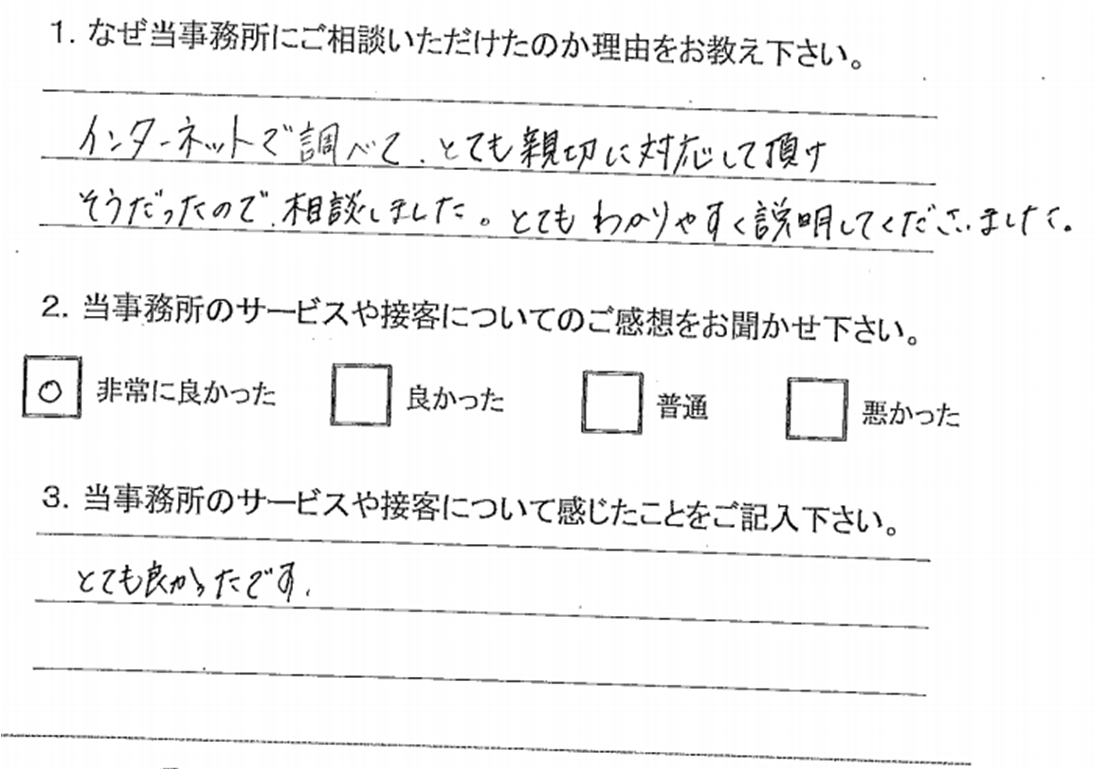 1. なぜ当事務所にご相談いただけたのか理由をお教え下さい。
インターネットで調べて、とても親切に対応して頂け
そうだったので、相談しました。とてもわかりやすく説明してくださいました。
2. 当事務所のサービスや接客についてのご感想をお聞かせ下さい。
○ 非常に良かった 良かった 普通 悪かった
3. 当事務所のサービスや接客について感じたことをご記入下さい。
とても良かったです.